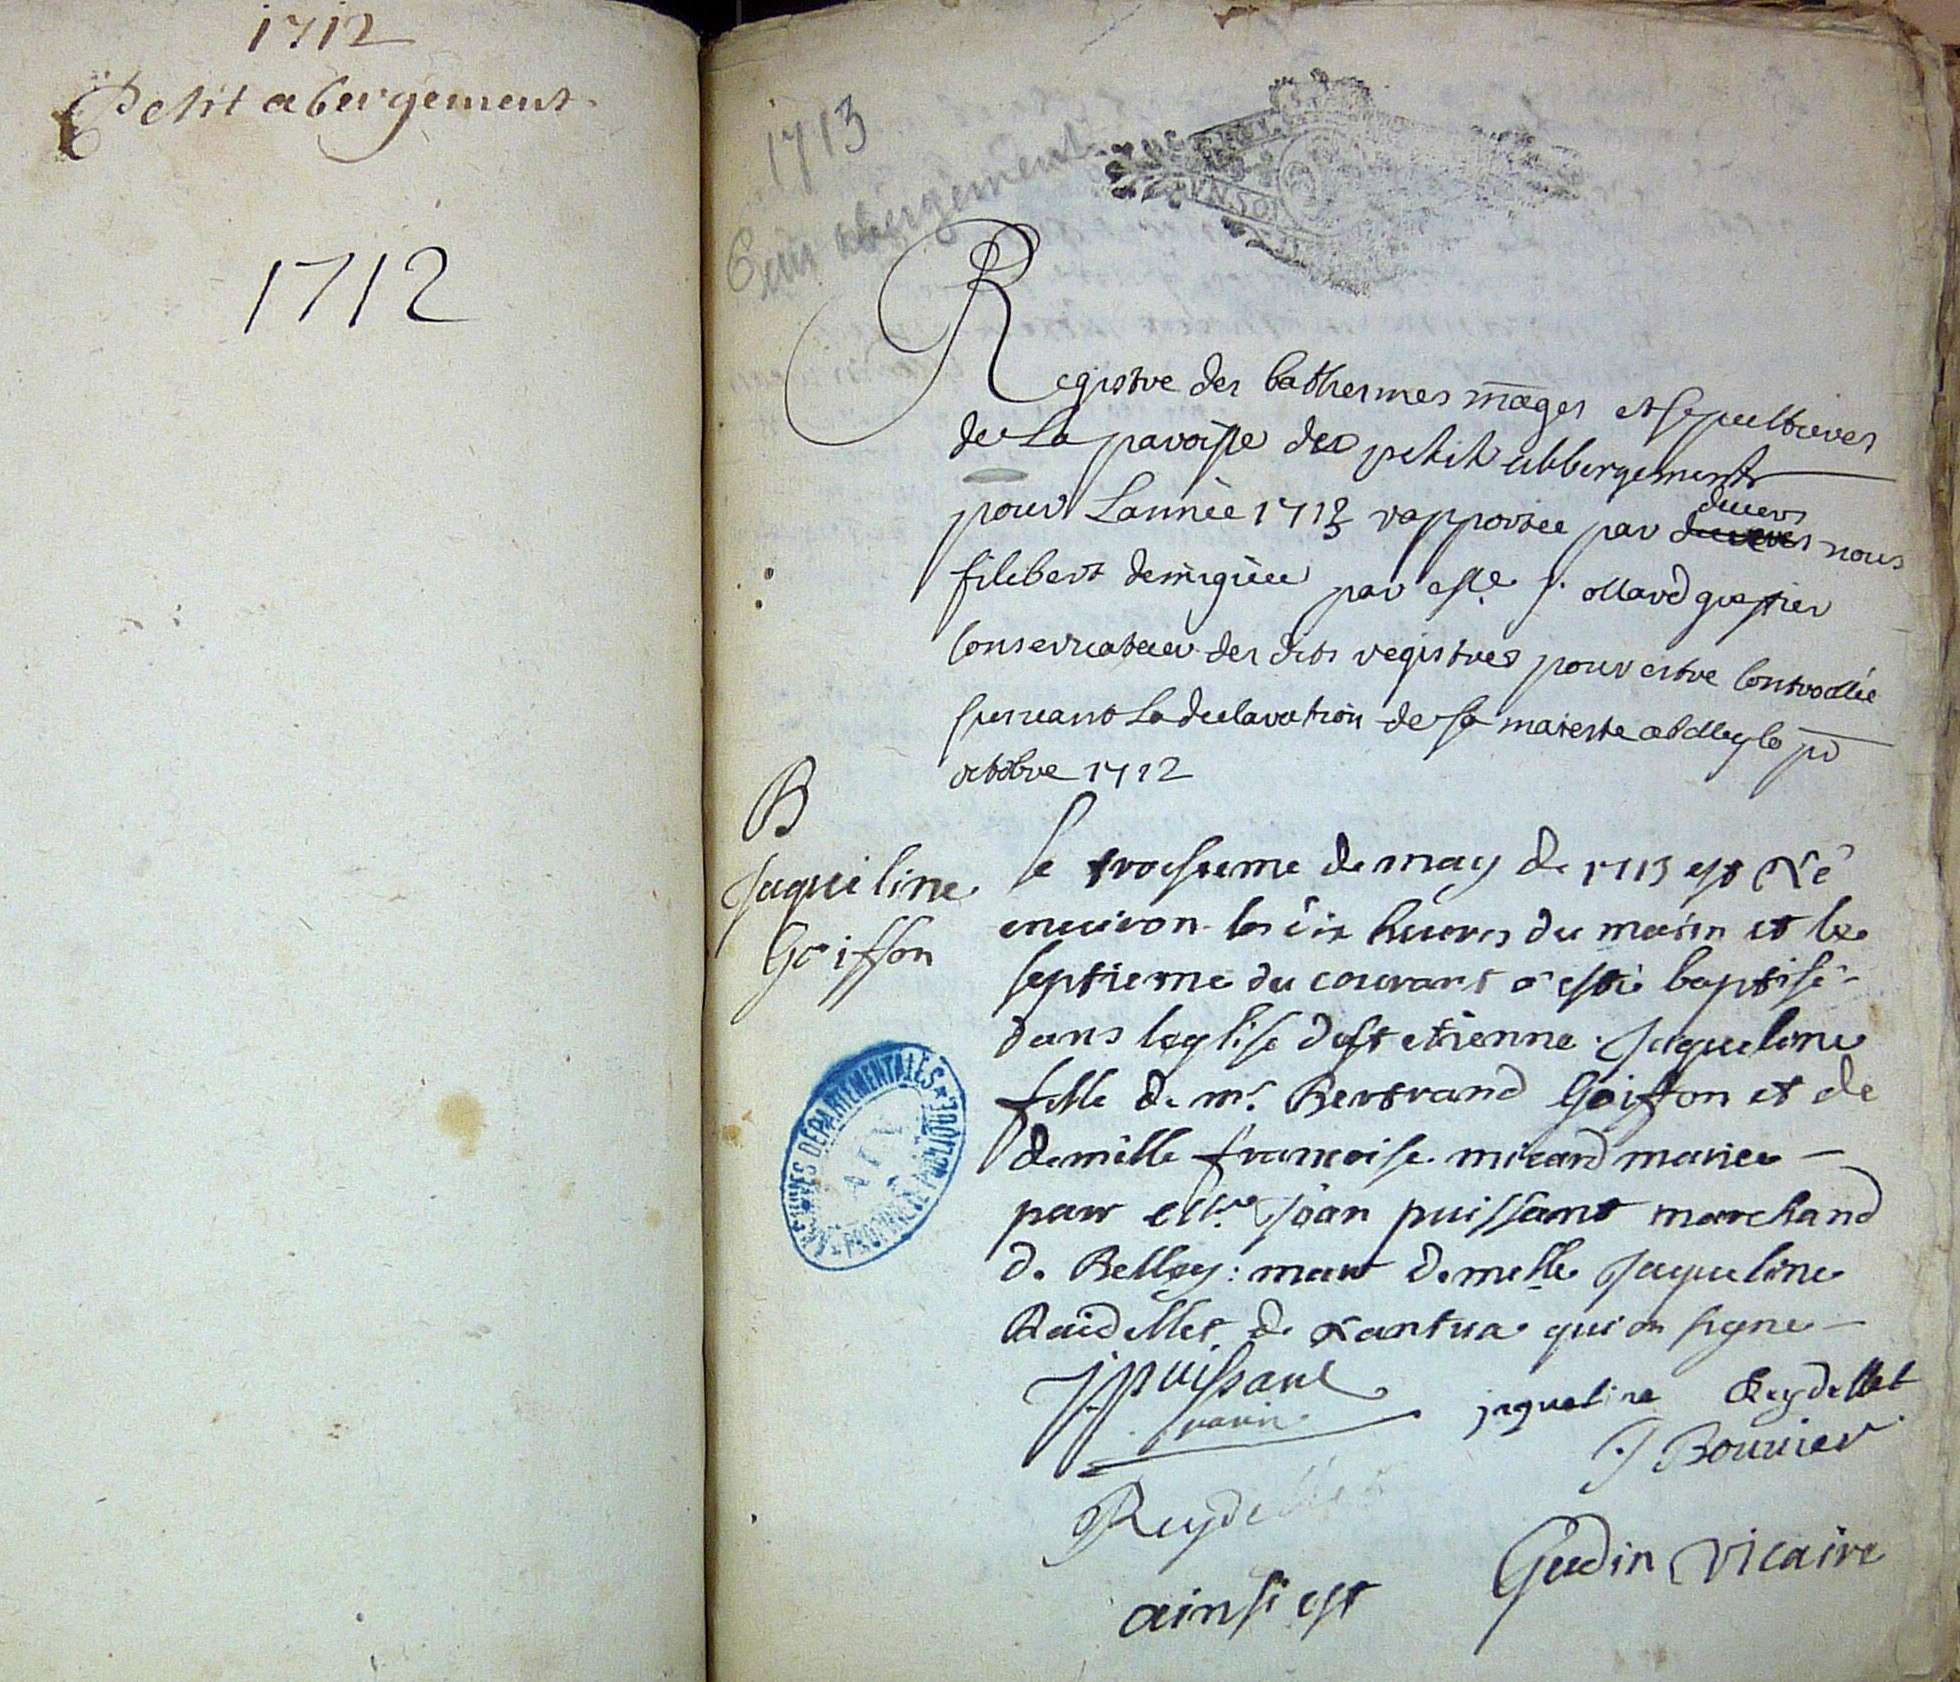 1712
Petit abergement
1712
1713
abergement
Registre des bathesmes mages et sepultures
de La paroisse de petit abbergement
pour Lannée 1713 rapportee par devers nous
filibert par ollard greffier
Conservateur des dits registres pour estre Controllée
suivant La declaration de sa majeste a belley le pr
octobre 1712
B
Jaqueline
Goiffon
le troisieme de may de 1713 est Né
environ les dix heures du matin et le
septieme du courant a esté baptisé
dans leglise de st etienne Jaqueline
fille de mr. Bertrand Goiffon et de
demelle francoise micard mariee
parr Joan puissant marchand
de Belley: marr demelle Jaqueline
Raidellet de Nantua qui on signe
J puissant
parin
jaqueline Reydellet
J Bouvier
Reydellet
ainsi est
Gudin vicaire
ARCHIVES DÉPARTEMENTALES
AIN